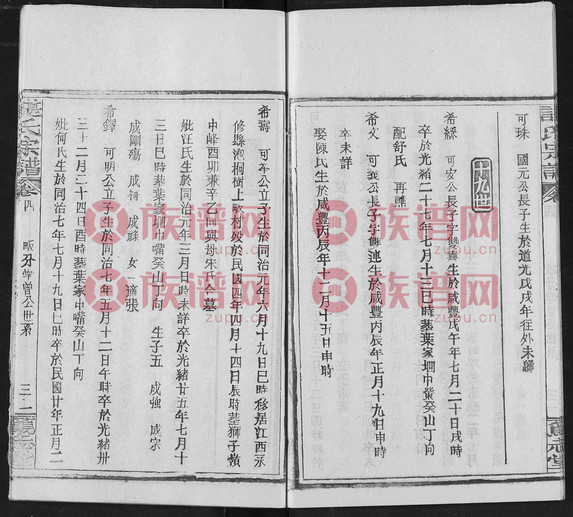 可珠 國元公長子生於道光戊戌年往外未歸
十九世
希綵 可安公長子字雙喜生於咸豐戊午年七月二十日戌時
卒於光緒二十七年七月十三巳時墓葉家垇中嘴癸山丁向
配舒氏 再醮
希文 可 公長子字雙連生於咸豐丙辰年正月十九日申時
卒未詳
娶陳氏生於咸豐丙辰年十二月十五日申時
希壽 可 公立子生於同治元年六月十九日巳時移居江西永
修縣 桐樹上 村歿於民國四年四月十四日辰時墓獅子嶺
中峰酉卯兼辛乙向與母朱氏 墓
妣汪氏生於同治元年三月日時未詳卒於光緒廿五年七月十
三日巳時墓葉家垇中嘴癸山丁向 生子五 成強 成宗
成剛殤 成 成 女一適張
希鐸 可明公立子生於同治七年五月十二日午時卒於光緒卅
三十二月二十四日酉時墓葉家中嘴癸山丁向
妣何氏生於同治七年七月十九日巳時卒於民國廿年正月二
氏宗譜 卷四 畈分學曾公世系 三二
族譜网
zupu.cn